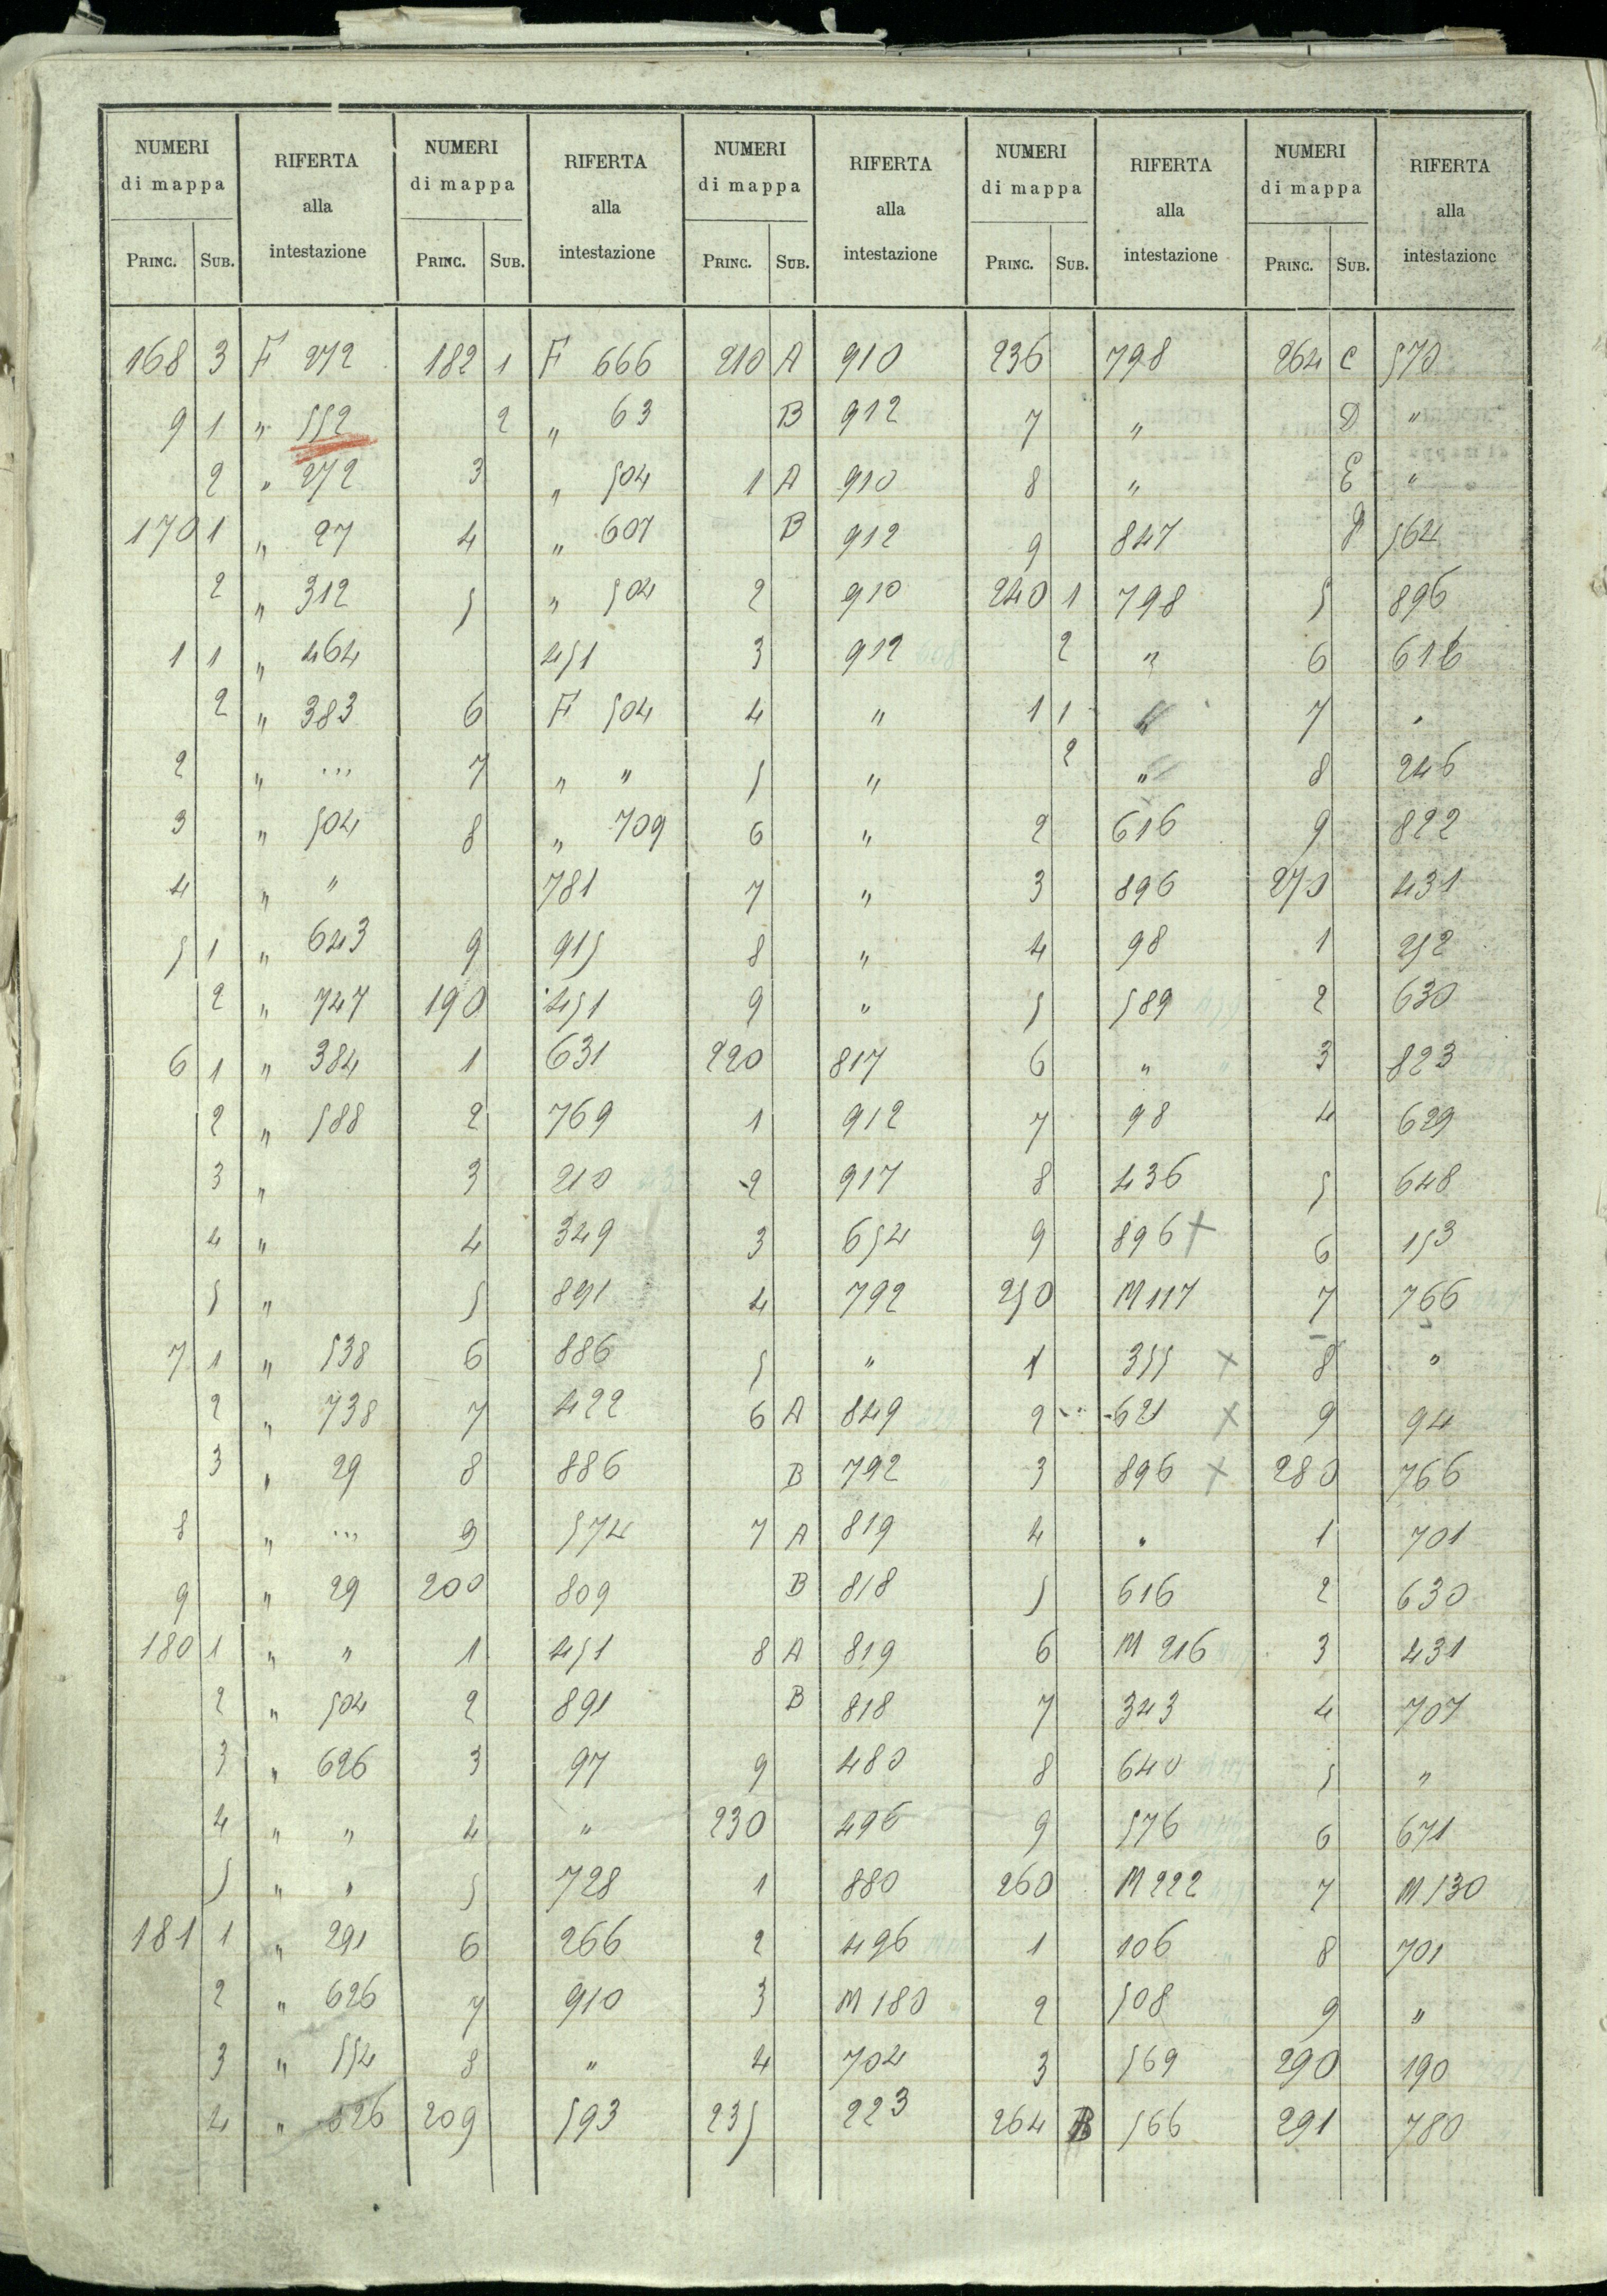 NUMERI di mappa RIFERTA alla intestazione NUMERI di mappa RIFERTA alla intestazione NUMERI di mappa RIFERTA alla intestazione NUMERI di mappa RIFERTA alla intestazione NUMERI di mappa RIFERTA alla intestazione
PRINC. SUB. PRINC. SUB. PRINC. SUB. PRINC. SUB. PRINC. SUB.
168 3 F 272 182 1 F 666 210 A 910 236 798 264 C 570
9 1 " 552 2 " 63 B 912 7 " D "
2 " 272 3 " 504 1 A 910 8 " E "
170 1 " 27 4 " 607 B 912 9 847 564
2 " 312 5 " 504 2 910 240 1 798 5 896
1 1 " 464 451 3 912 2 " 6 616
2 " 383 6 F 504 4 " 1 1 " 7 "
2 " ... 7 " " 5 " 2 " 8 246
3 " 504 8 " 709 6 " 2 616 9 822
4 " " 781 7 " 3 896 270 431
5 1 " 643 9 915 8 " 4 98 1 252
2 " 747 190 451 9 " 5 589 2 630
6 1 " 384 1 631 220 817 6 " 3 823
2 " 588 2 769 1 912 7 98 4 629
3 " 3 210 2 917 8 436 5 648
4 " 4 349 3 654 9 896 + 6 153
5 " 5 891 4 792 250 M 117 7 766
7 1 " 538 6 886 5 " 1 355 + 8 "
2 " 738 7 422 6 A 849 2 621 + 9 94
3 " 29 8 886 B 792 3 896 + 280 766
8 " ... 9 574 7 A 819 4 " 1 701
9 " 29 200 809 B 818 5 616 2 630
180 1 " " 1 451 8 A 819 6 M 216 3 431
2 " 504 2 891 B 818 7 343 4 707
3 " 626 3 97 9 480 8 640 5 "
4 " " 4 " 230 496 9 576 6 671
5 " " 5 728 1 880 260 M 222 7 M 130
181 1 " 291 6 266 2 496 1 106 8 701
2 " 626 7 910 3 M 180 2 508 9 "
3 " 554 8 " 4 704 3 569 290 190
4 " 626 209 593 235 223 264 B 566 291 780